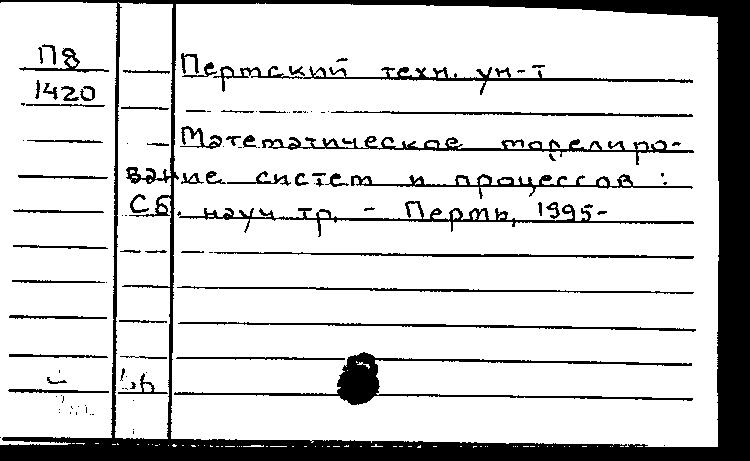 П8
1420
Пермский техн. ун-т
Математическое моделиро-
вание систем и процессов :
Сб. науч тр. - Пермь, 1995-